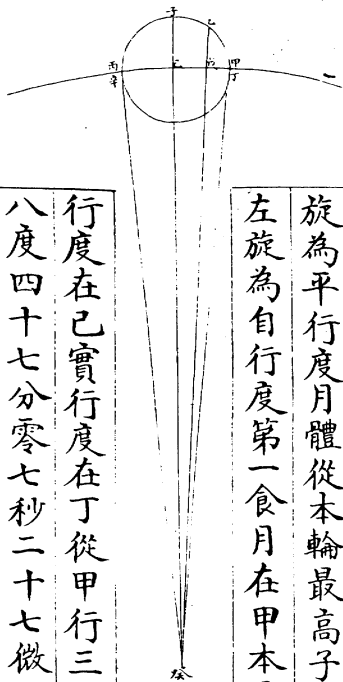 子
乙
丙
辛
壬
甲
丁
旋為平行度月體從本輪最高子
左旋為自行度第一食月在甲本
行度在己實行度在丁從甲行三
八度四十七分零七秒二十七微
癸